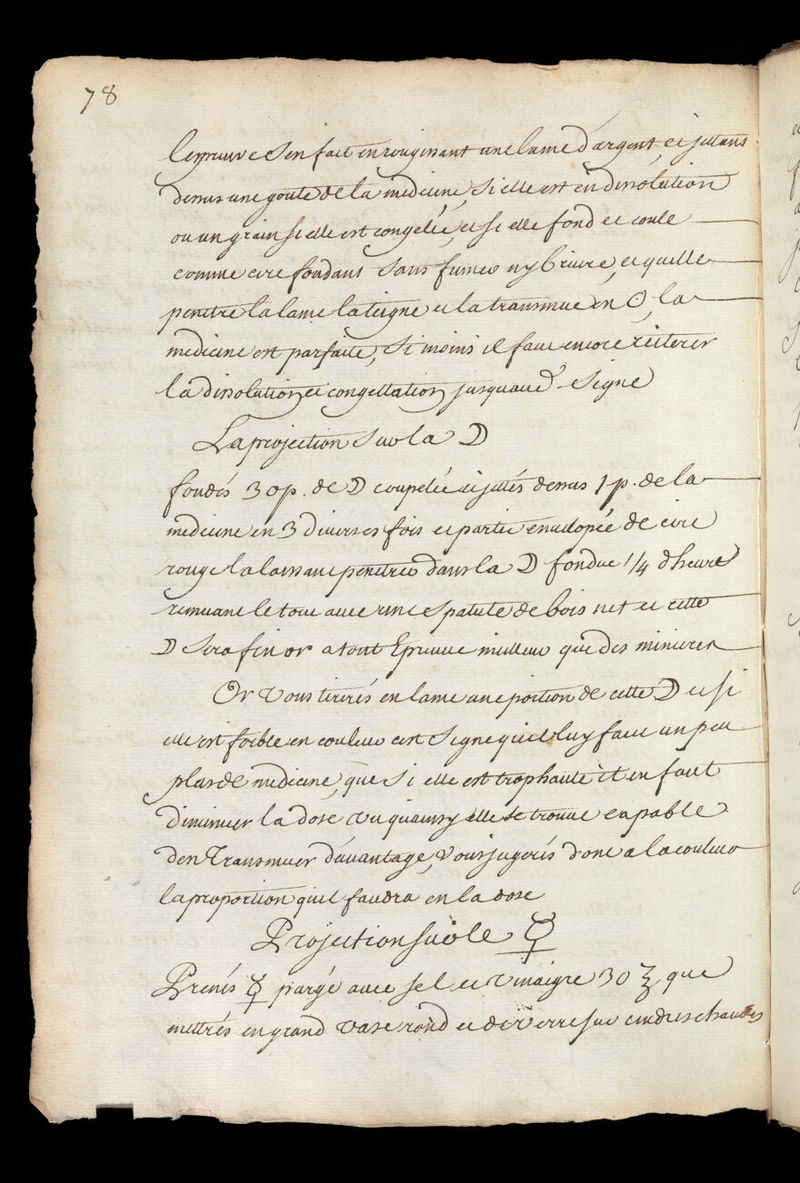 78
lepreuve sen fait en rougissant une lame d'argent, et jettans
dessus une goute de la medecine, si elle est en dissolution
ou un grain si elle est congelée, et si elle fond et coule
comme cire fondans sans fumeo ny bruire, et quelle
penetre la lame la teigne et la transmue en ☉, la
medicine est parfaite, si moins il faut encore reiterer
la dissolution et congellation jusquaud. signe
La projection sur la ☽
fondés 30 p. de ☽ coupelée et jettés dessus 1 p. de la
medicine en 3 diverses fois et partie envelopée de cire
rouge la laissant penetrer dans la ☽ fondue 1/4 d'heure
remuant le tout avec une espatule de bois net et cette
☽ sera fin or a tout Epreuve meilleur que des minieres
Or vous tirerés en lame une portion de cette ☽ et si
elle est foible en couleur cest signe quil luy faut un peu
plus de medicine, que si elle est trop haute it en faut
diminuer la dose vu quainsy elle se trouve capable
den Transmuer davantage, vous jugerés donc a la couleur
la proportion quil faudra en la dose
Projection sur le ☿
Prenés ☿ purgé avec sel et vinaigre 30 ℥ que
mettrés en grand vase rond et de verre sur cendres chaudes